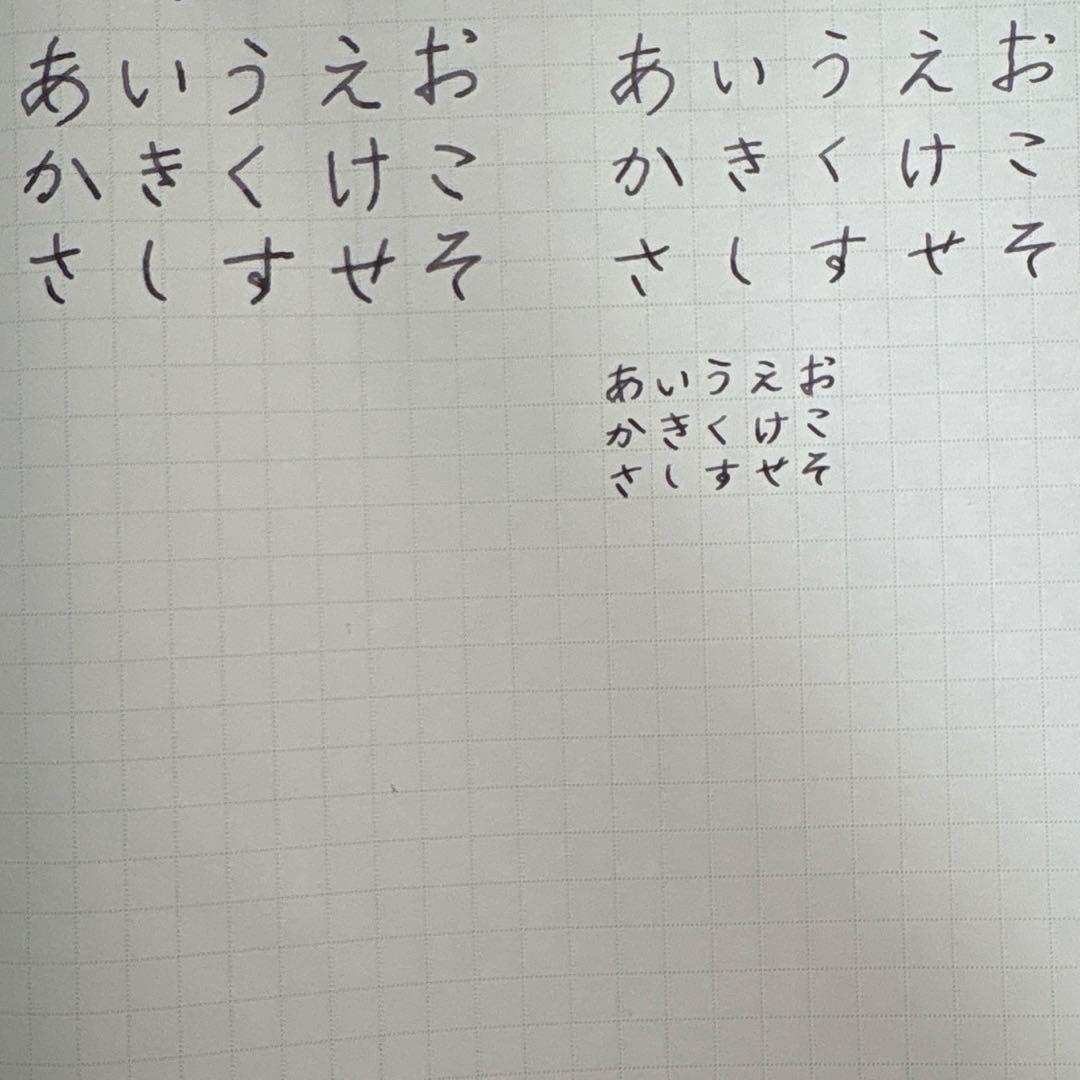 あいうえお
かきくけこ
さしすせそ
あいうえお
かきくけこ
さしすせそ
あいうえお
かきくけこ
さしすせそ